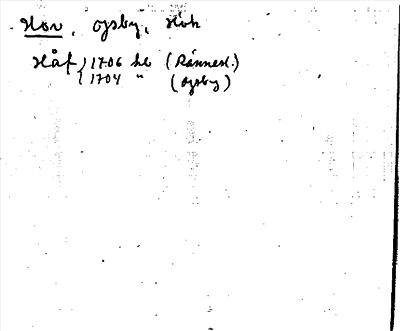 Hov, Ysby, Hök
Håf, 1706 hb (Rännesl.)
1704 " (Ysby)